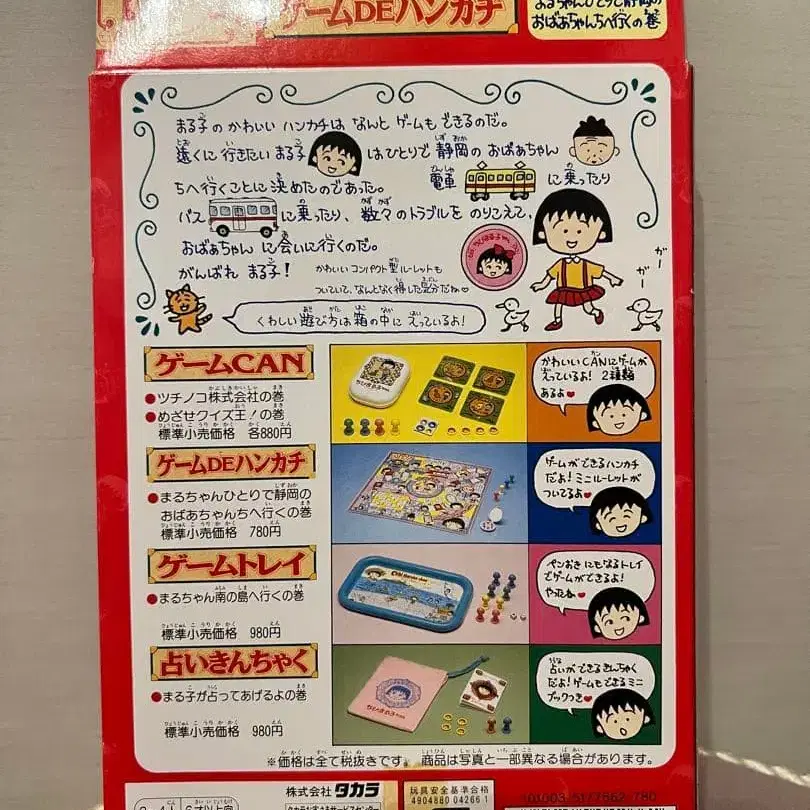 ゲームDEハンカチ
まるちゃんひとりで静岡の
おばあちゃんちへ行くの巻
まる子の かわいい ハンカチは なんと ゲームも できるのだ。
遠くに 行きたい まる子 はひとりで 静岡の おばあちゃん
ちへ行くことに 決めたのであった。 電車 に乗ったり
バス に乗ったり、数々のトラブルを のりこえて、
おばあちゃんに会いに行くのだ。
がんばれ まる子!
かわいい コンパクト型ルーレットも
ついていて、なんとなく得した気分だね♥
ガー
ガー
くわしい 遊び方は 箱の中に 入っているよ!
ゲームCAN
●ツチノコ株式会社の巻
●めざせクイズ王!の巻
標準小売価格 各880円
かわいいCANにゲームが
入っているよ! 2種類
あるよ♥
ゲームDEハンカチ
●まるちゃんひとりで静岡の
おばあちゃんちへ行くの巻
標準小売価格 780円
ゲームができるハンカチ
だよ! ミニルーレットが
ついてるよ♥
ゲームトレイ
●まるちゃん南の島へ行くの巻
標準小売価格 980円
ペンおきにもなるトレイ
でゲームができるよ!
やったね♥
占いきんちゃく
●まる子が占ってあげるよの巻
標準小売価格 980円
占いができるきんちゃく
だよ! ゲームもできるミニ
ブックつき♥
※価格は全て税抜きです。 商品は写真と一部異なる場合があります。
株式会社 タカラ
玩具安全基準合格
4904880 04266 1